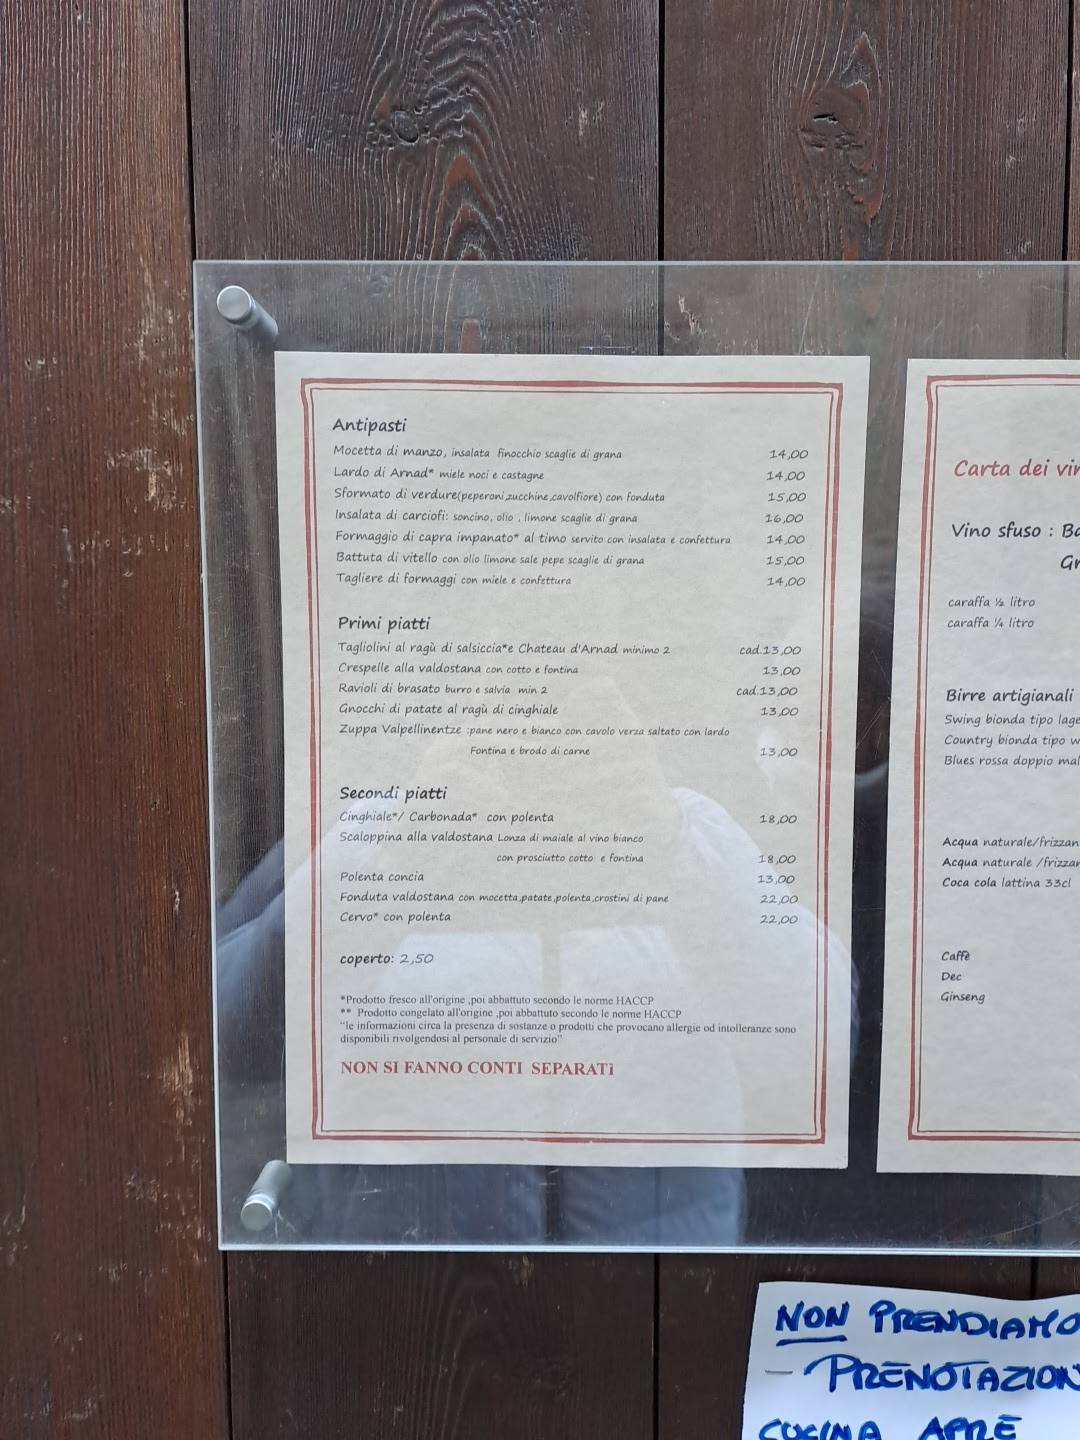 Antipasti
Mocetta di manzo, insalata finocchio scaglie di grana 14,00
Lardo di Arnad* miele noci e castagne 14,00
Sformato di verdure(peperoni,zucchine,cavolfiore) con fonduta 15,00
Insalata di carciofi: soncino, olio , limone scaglie di grana 16,00
Formaggio di capra impanato* al timo servito con insalata e confettura 14,00
Battuta di vitello con olio limone sale pepe scaglie di grana 15,00
Tagliere di formaggi con miele e confettura 14,00
Primi piatti
Tagliolini al ragù di salsiccia*e Chateau d'Arnad minimo 2 cad.13,00
Crespelle alla valdostana con cotto e fontina 13,00
Ravioli di brasato burro e salvia min 2 cad.13,00
Gnocchi di patate al ragù di cinghiale 13,00
Zuppa Valpellinentze :pane nero e bianco con cavolo verza saltato con lardo
Fontina e brodo di carne 13,00
Secondi piatti
Cinghiale*/ Carbonada* con polenta 18,00
Scaloppina alla valdostana Lonza di maiale al vino bianco
con prosciutto cotto e fontina 18,00
Polenta concia 13,00
Fonduta valdostana con mocetta,patate,polenta,crostini di pane 22,00
Cervo* con polenta 22,00
coperto: 2,50
*Prodotto fresco all'origine ,poi abbattuto secondo le norme HACCP
** Prodotto congelato all'origine ,poi abbattuto secondo le norme HACCP
"le informazioni circa la presenza di sostanze o prodotti che provocano allergie od intolleranze sono
disponibili rivolgendosi al personale di servizio"
NON SI FANNO CONTI SEPARATi
Carta dei vin
Vino sfuso : Ba
Gr
caraffa ½ litro
caraffa ¼ litro
Birre artigianali
Swing bionda tipo lage
Country bionda tipo w
Blues rossa doppio mal
Acqua naturale/frizzan
Acqua naturale /frizzan
Coca cola lattina 33cl
Caffè
Dec
Ginseng
NON PRENDIAMO
- PRENOTAZION
CUCINA APRE